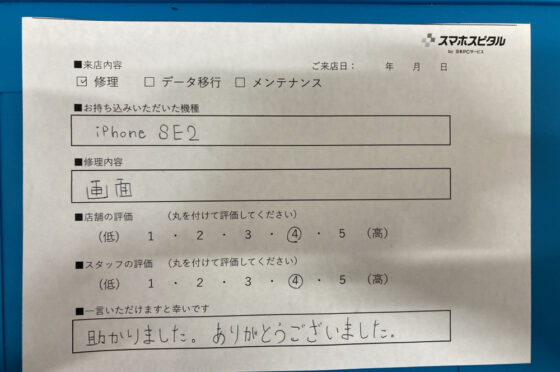 スマホスピタル
by 日本PCサービス
■来店内容 ご来店日： 年 月 日
☑ 修理 □ データ移行 □ メンテナンス
■お持ち込みいただいた機種
iPhone SE2
■修理内容
画面
■店舗の評価 （丸を付けて評価してください）
（低） 1 ・ 2 ・ 3 ・ ④ ・ 5 （高）
■スタッフの評価 （丸を付けて評価してください）
（低） 1 ・ 2 ・ 3 ・ ④ ・ 5 （高）
■一言いただけますと幸いです
助かりました。ありがとうございました。